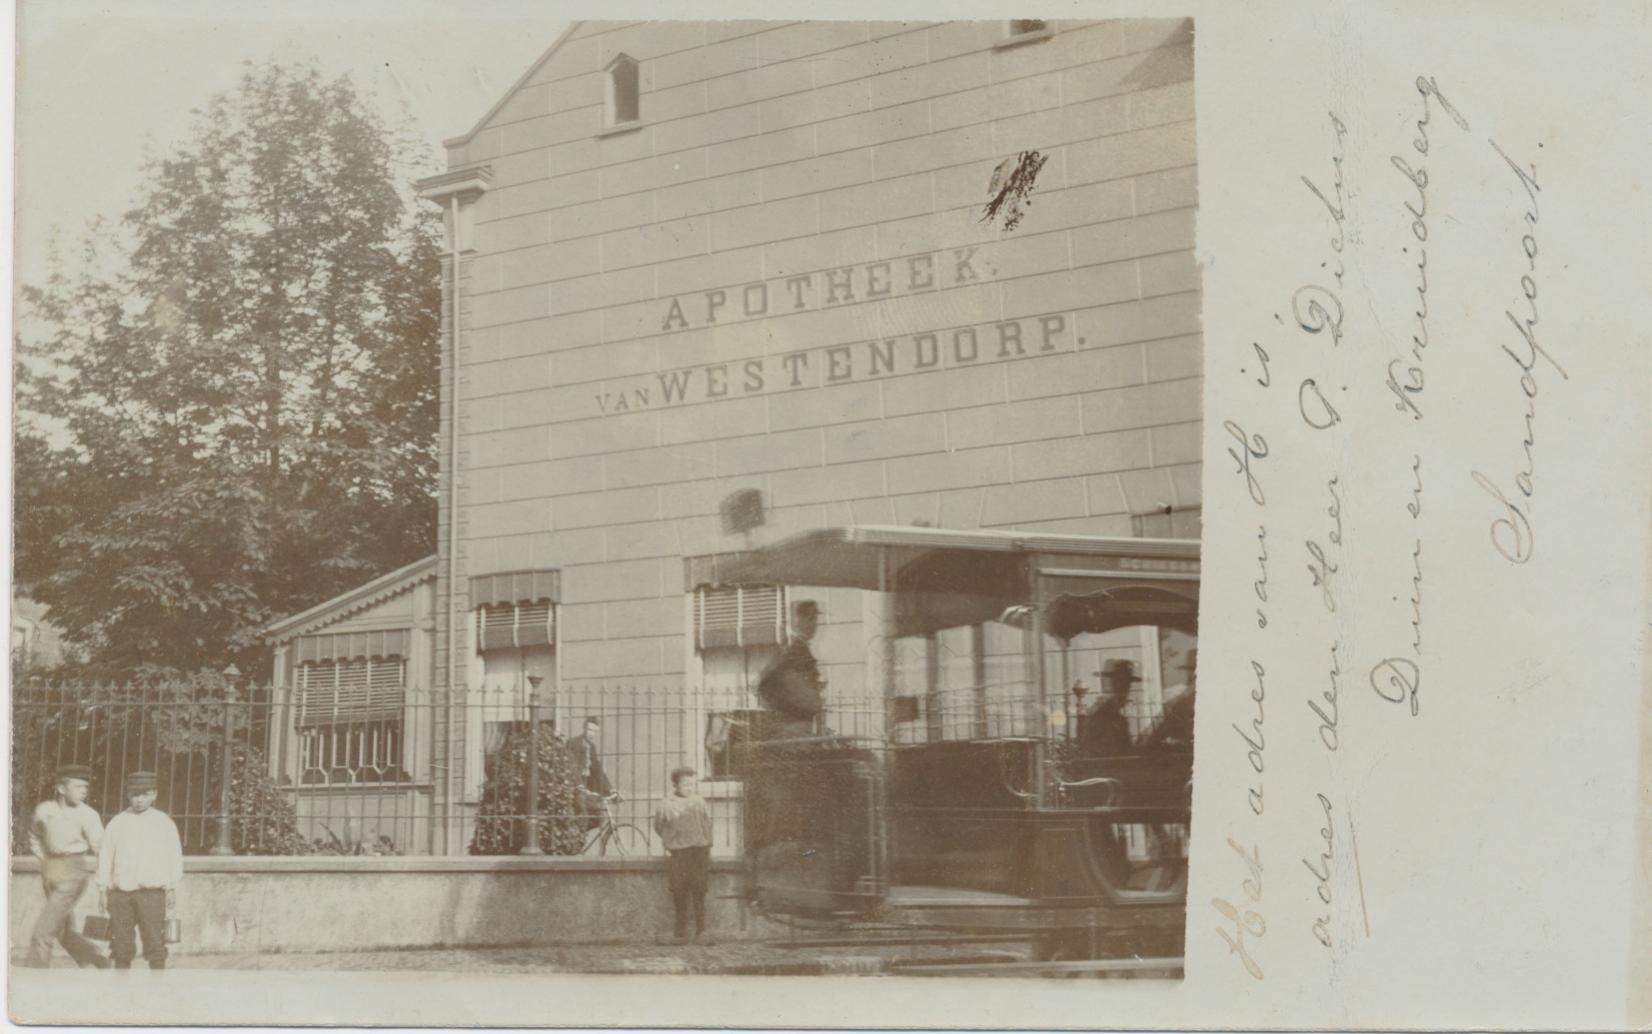 APOTHEEK.
VAN WESTENDORP.
Het adres van H is
adres den Heer P. Dictus
Duin en Kruidberg
Sandpoort.